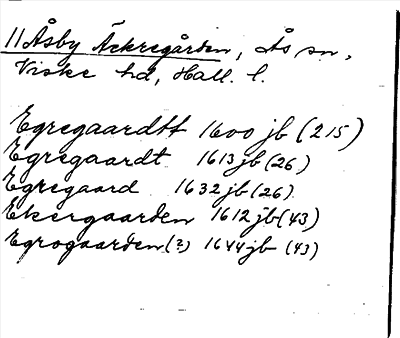 11 Åsby Äckregården, Ås sn,
Viske hd, Hall. l.
Egregaardtt 1600 jb (215)
Egregaardt 1613 jb (26)
Egregaard 1632 jb (26)
Ekergaarden 1612 jb (43)
Egrogaarden (?) 1644 jb (43)